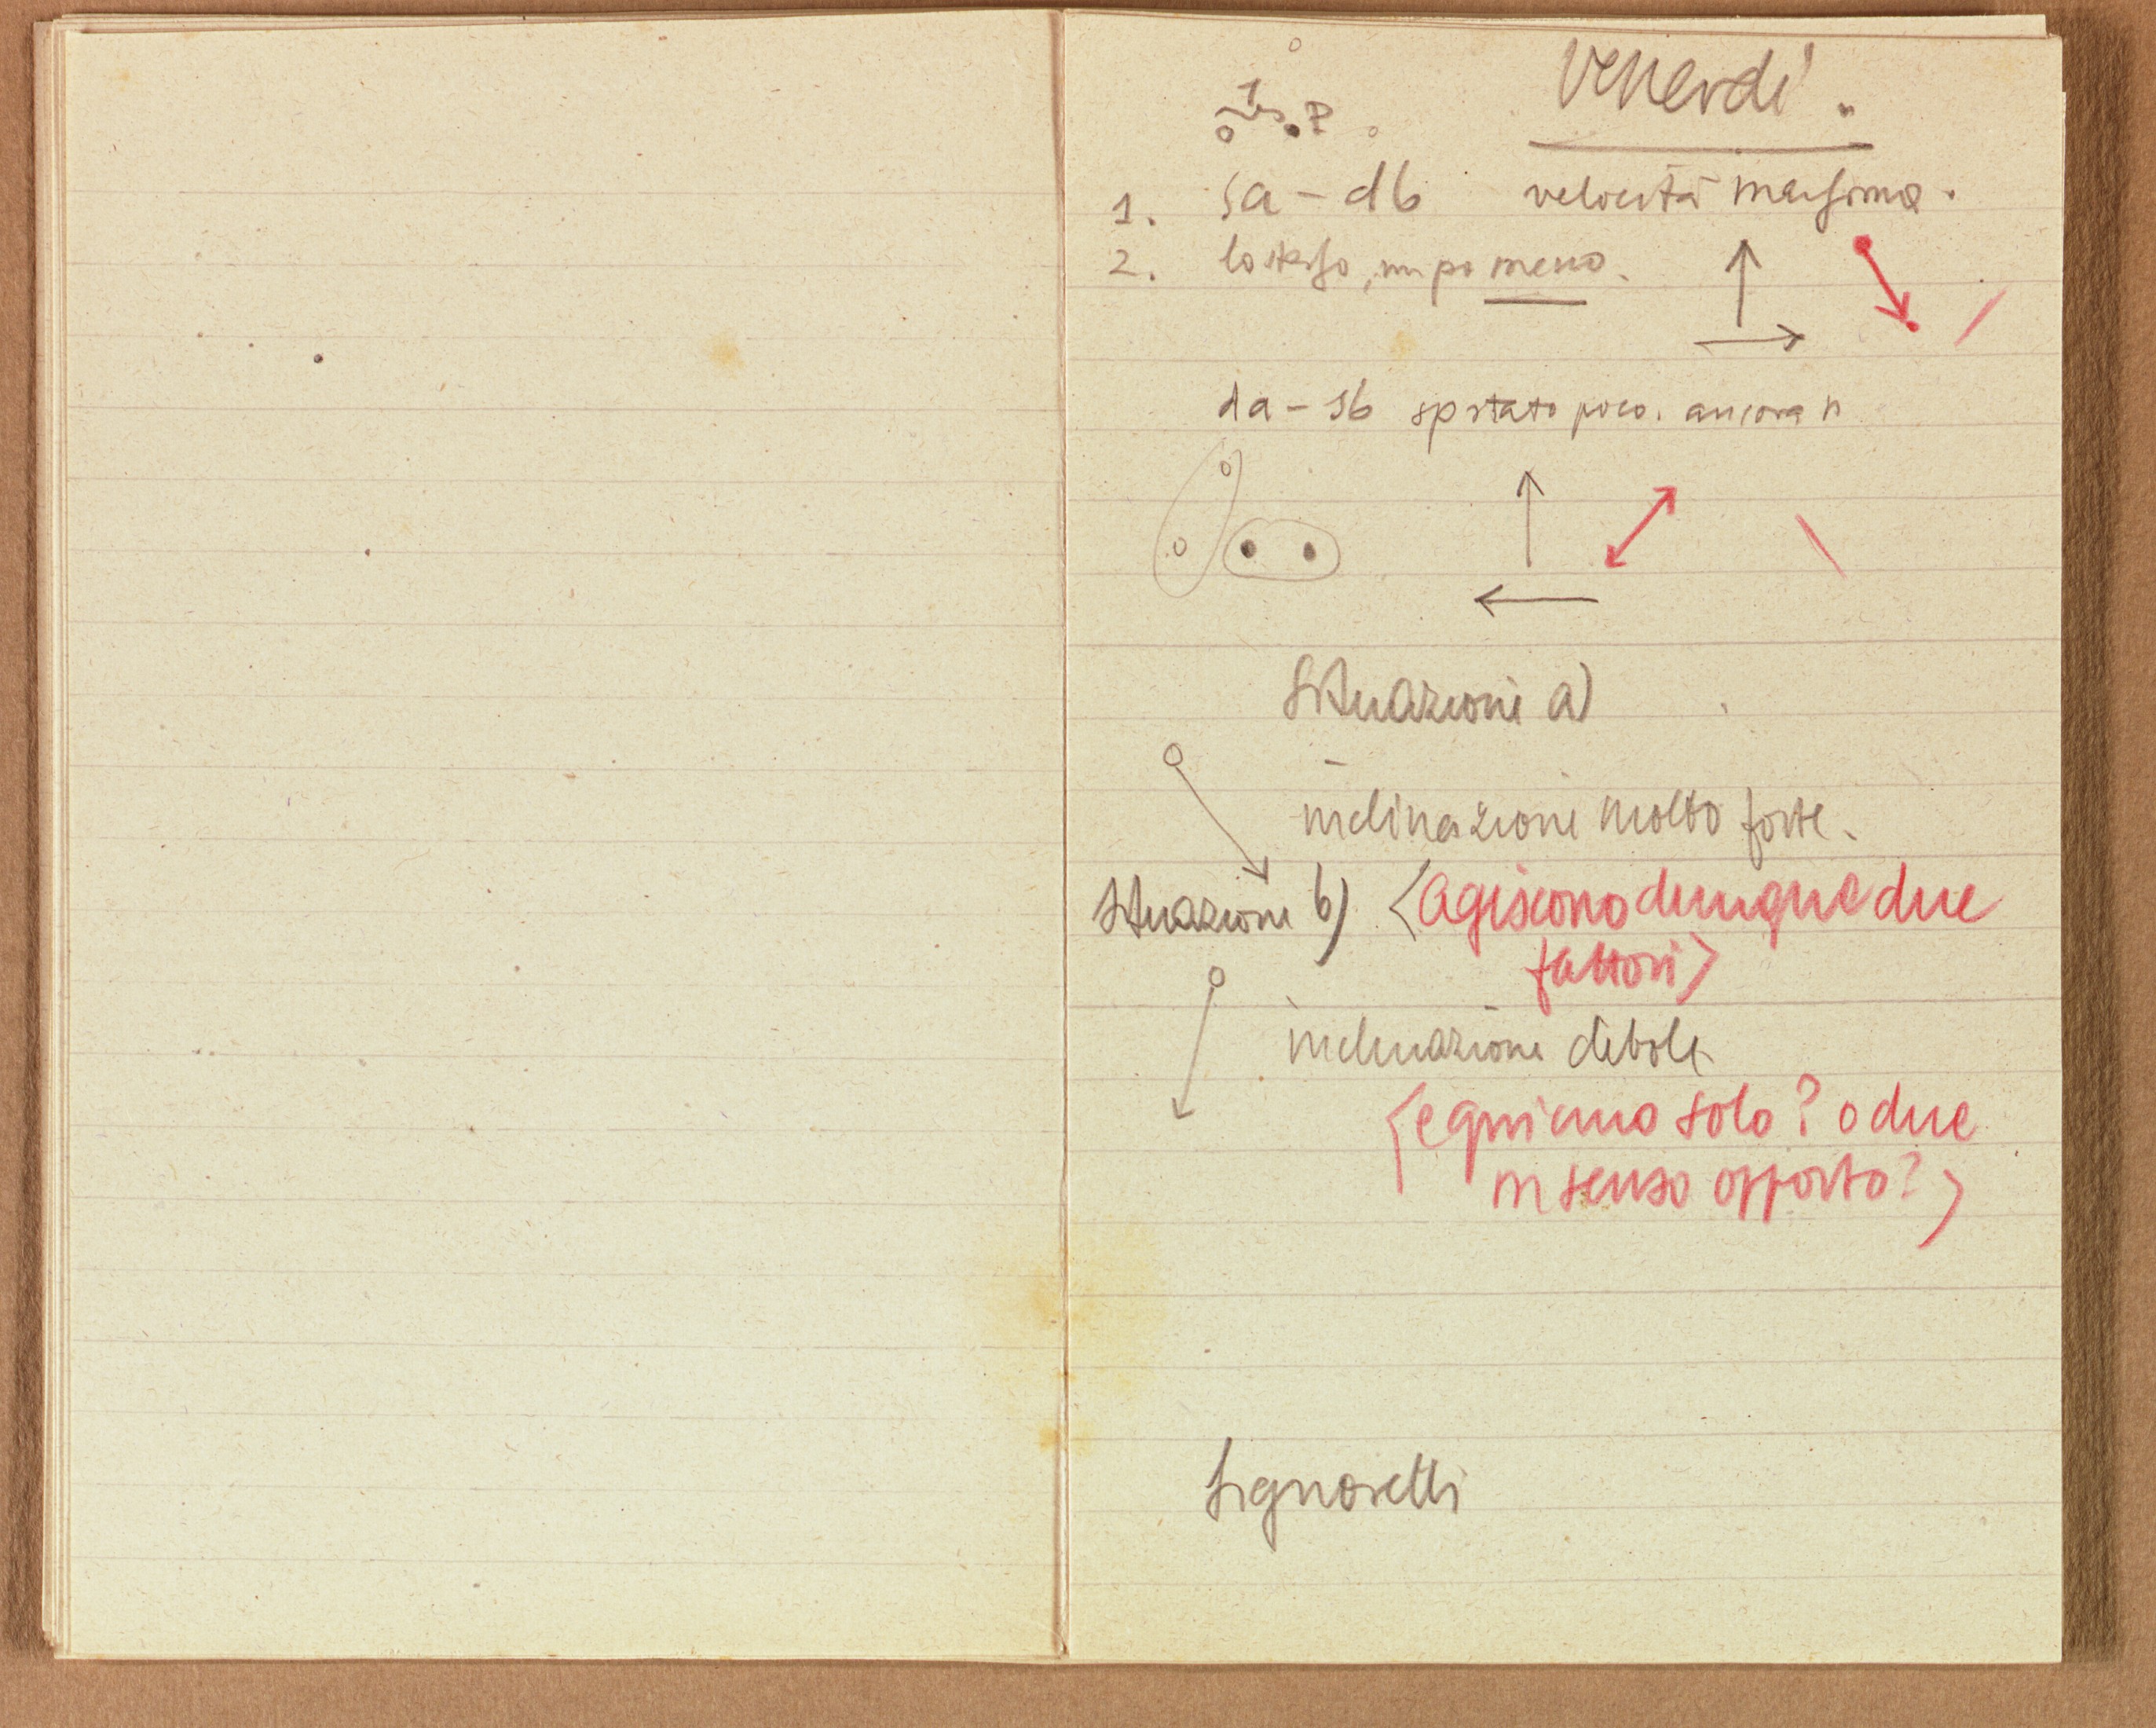 Venerdì.
1. sa - db velocità massima.
2. lo stesso, un po meno.
da - sb spstato poco. ancora
Situazione a)
inclinazione molto forte.
Situazione b) <agiscono dunque due
fattori>
inclinazione debole
<e qui uno solo? o due
in senso opposto?>
Signorelli